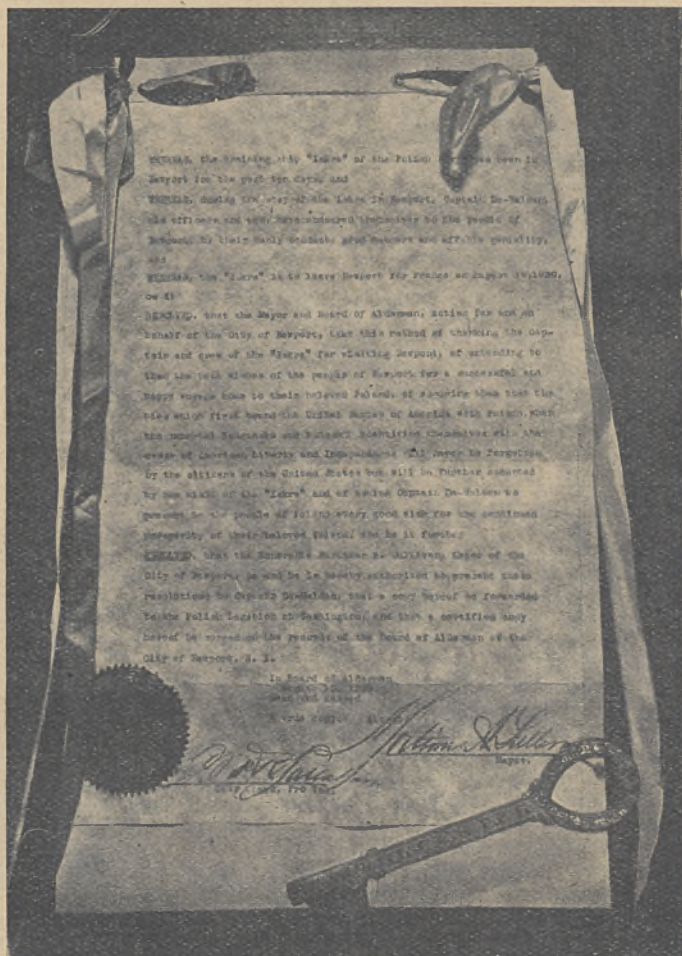 WHEREAS, the training ship "Iskra" of the Polish has been in
Newport for the past ten days, and
WHEREAS, during the stay of the Iskra in Newport, Captain De-Walden,
his officers and men, have endeared themselves to the people of
Newport by their manly conduct, good manners and affable geniality,
and
WHEREAS, the "Iskra" is to leave Newport for France on August
be it
RESOLVED, that the Mayor and Board of Aldermen, acting for and on
behalf of the City of Newport, take this method of thanking the Cap-
tain and crew of the "Iskra" for visiting Newport, of extending to
them the best wishes of the people of Newport for a successful and
happy voyage home to their beloved Poland, of assuring them that the
ties which first bound the United States of America with Poland, when
the and Pulaski identified themselves with the
cause of American Liberty and Independence will never be forgotten
by the citizens of the United States but will be further cemented
by the visit of the "Iskra" and of Captain De-Walden to
to the people of Poland every good wish for the continued
prosperity of their beloved Poland, and be it further
RESOLVED, that the Honorable Mortimer A. Sullivan, Mayor of the
City of Newport, be and he is hereby authorized to present these
resolutions to Captain De-Walden, that a copy hereof be forwarded
to the Polish Legation at Washington, and that a certified copy
hereof be spread on the records of the Board of Aldermen of the
City of Newport, R. I.
In Board of Aldermen
August
Read and Passed
Mayor.
City Clerk, Pro Tem.